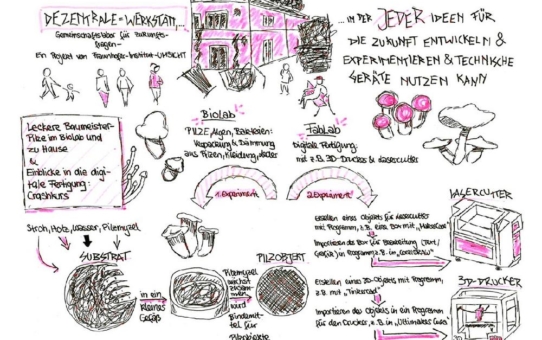 DEZENTRALE = WERKSTATT,...
Gemeinschaftslabor für Zukunfts-
fragen-
Ein Projekt von Fraunhofer-Institut-UMSICHT
... IN DER JEDER IDEEN FÜR
DIE ZUKUNFT ENTWICKELN &
EXPERIMENTIEREN & TECHNISCHE
GERÄTE NUTZEN KANN
Leckere Baumeister-
Pilze im Biolab und
zu Hause
&
Einblicke in die digi-
tale Fertigung:
Crashkurs
BIOLAB
PILZE, Algen, Bakterien:
Verpackung & Dämmung
aus Pilzen, Kleidung,
FABLAB
Digitale Fertigung:
mit z.B. 3D-Drucker & Lasercutter
1. Experiment
2. Experiment
Stroh, Holz, Wasser, Pilzmyzel
SUBSTRAT
in ein
kleines
Gefäß
Pilzmyzel
wächst
zusammen
wird
Bindemit-
tel für
Pilzobjekte
PILZOBJEKT
LASERCUTTER
Erstellen eines Objekts für Lasercutter
mit Programm, z.B. eine Box mit
Importieren der Box für Bearbeitung (Text/
Grafik) in Programm z.B. in "CorelDRAW"
3D-DRUCKER
Erstellen eines 3D-Objekts mit Programm,
z.B. mit "Tinkercad"
Importieren des Objekts in ein Programm
für den Drucker, z.B. in "Ultimaker Cura"